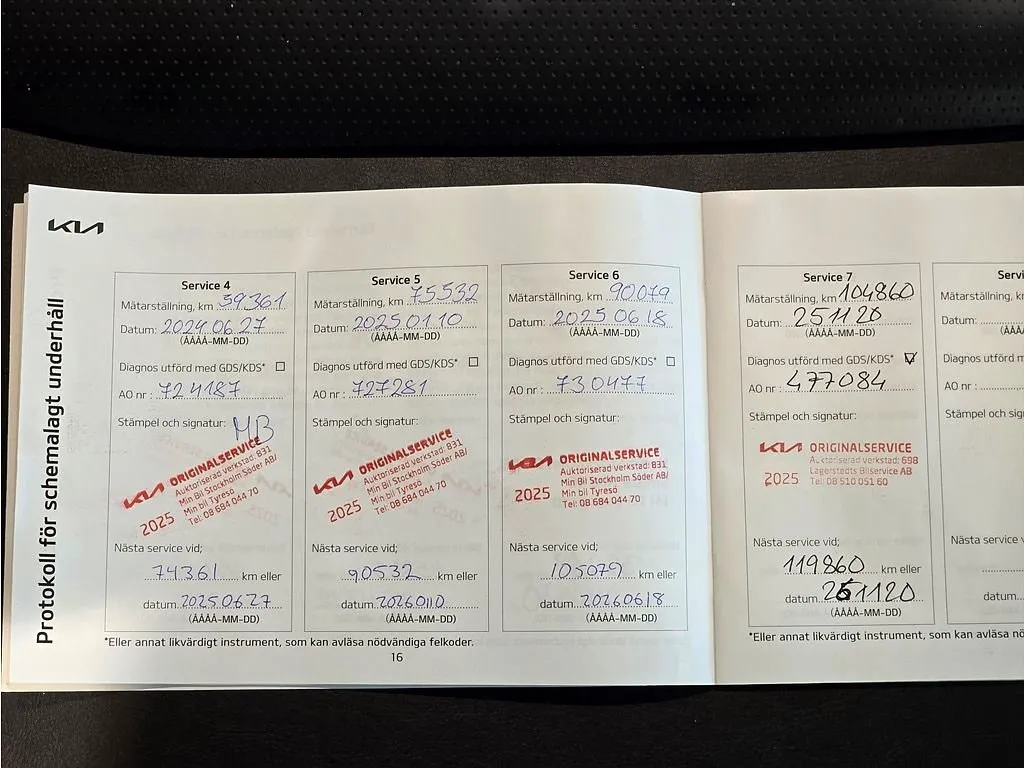 KIA
Protokoll för schemalagt underhåll
Service 4
Mätarställning, km 59361
Datum: 2024 06 27
(ÅÅÅÅ-MM-DD)
Diagnos utförd med GDS/KDS*
AO nr : 724187
Stämpel och signatur: MB
KIA ORIGINALSERVICE
Auktoriserad verkstad: 831
Min Bil Stockholm Söder AB/
Min bil Tyresö
2025 Tel: 08 684 044 70
Nästa service vid;
74361 km eller
datum 2025 06 27
(ÅÅÅÅ-MM-DD)
Service 5
Mätarställning, km 75532
Datum: 2025 01 10
(ÅÅÅÅ-MM-DD)
Diagnos utförd med GDS/KDS*
AO nr : 727281
Stämpel och signatur:
KIA ORIGINALSERVICE
Auktoriserad verkstad: 831
Min Bil Stockholm Söder AB/
Min bil Tyresö
2025 Tel: 08 684 044 70
Nästa service vid;
90532 km eller
datum 20260110
(ÅÅÅÅ-MM-DD)
Service 6
Mätarställning, km 90079
Datum: 2025 06 18
(ÅÅÅÅ-MM-DD)
Diagnos utförd med GDS/KDS*
AO nr : 730477
Stämpel och signatur:
KIA ORIGINALSERVICE
Auktoriserad verkstad: 831
Min Bil Stockholm Söder AB/
2025 Min bil Tyresö
Tel: 08 684 044 70
Nästa service vid;
105079 km eller
datum 20260618
(ÅÅÅÅ-MM-DD)
*Eller annat likvärdigt instrument, som kan avläsa nödvändiga felkoder.
16
Service 7
Mätarställning, km 104860
Datum: 251120
(ÅÅÅÅ-MM-DD)
Diagnos utförd med GDS/KDS*
AO nr : 477084
Stämpel och signatur:
KIA ORIGINALSERVICE
Auktoriserad verkstad: 698
Lagerstedts Bilservice AB
2025 Tel: 08 510 051 60
Nästa service vid;
119860 km eller
datum 261120
(ÅÅÅÅ-MM-DD)
Servi
Mätarställning, k
Datum:
(ÅÅÅ
Diagnos utförd m
AO nr :
Stämpel och sign
Nästa service v
datum
*Eller annat likvärdigt instrument, som kan avläsa nö